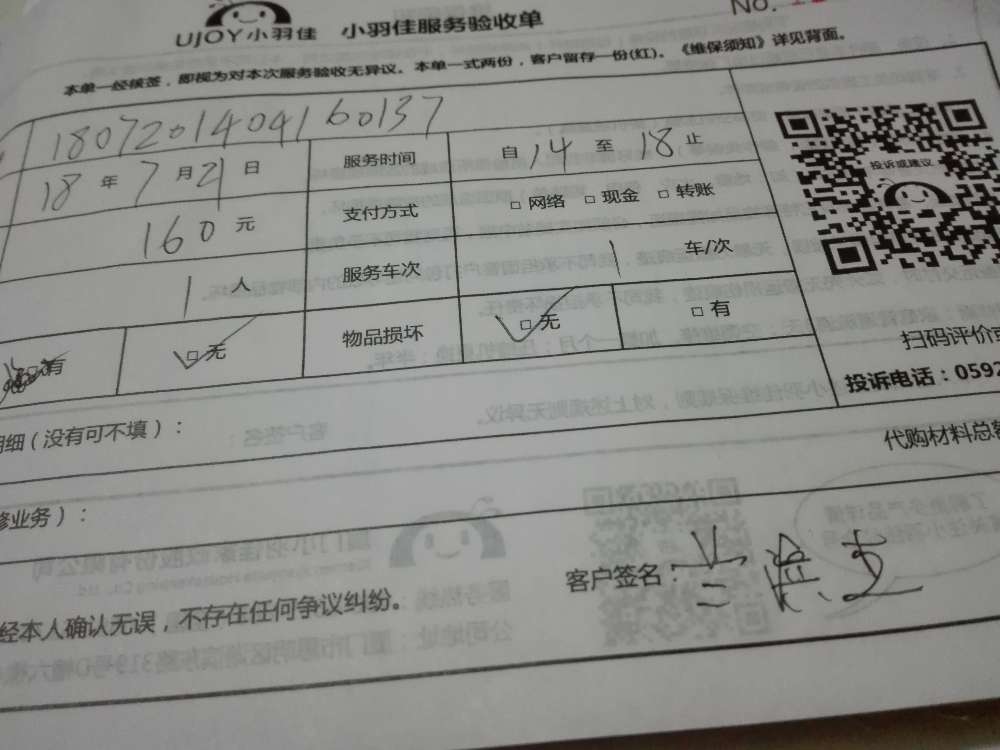 UJOY小羽佳 小羽佳服务验收单
No.
本单一经核签，即视为对本次服务验收无异议。本单一式两份，客户留存一份(红)。《维保须知》详见背面。
1807201404160137
18 年 7 月 21 日 服务时间 自 14 至 18 止
160 元 支付方式 □ 网络 □ 现金 □ 转账
1 人 服务车次 1 车/次
□ 有 □ 无 物品损坏 □ 无 □ 有
投诉或建议
扫码评价或
投诉电话：0592
明细（没有可不填）：
代购材料总额
修业务）：
经本人确认无误，不存在任何争议纠纷。
客户签名：